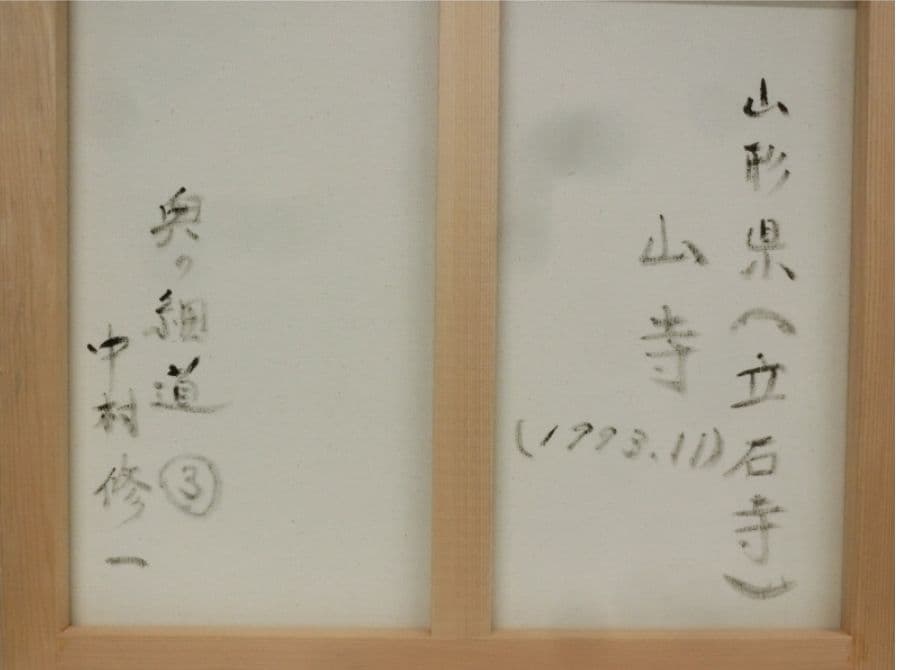 山形県(立石寺)
山寺
(1993.11)
奥の細道③
中村修一